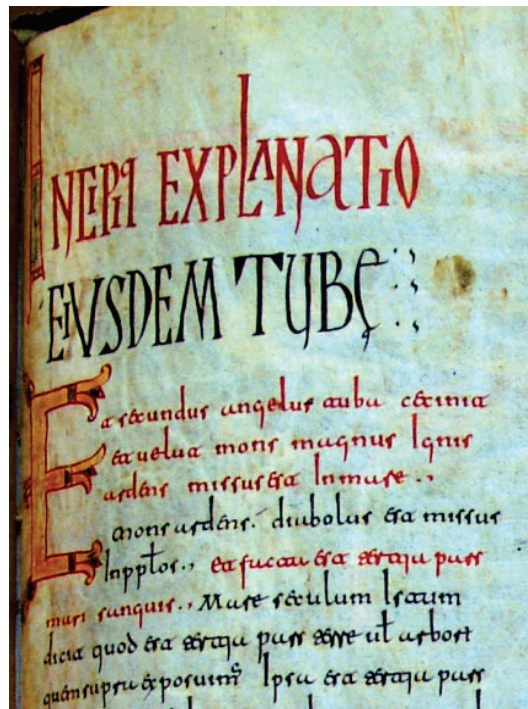 INCIPIT EXPLANATIO
EIVSDEM TUBĘ
Et secundus angelus tuba cecinit
et velut mons magnus ignis
ardens missus est in mare.,
mons ardens. diabolus est missus
in pptos., et facta est tertia pars
maris sanguis., Mare seculum istum
dicit quod est tertia pars terre ul arbores
quam supra exposuim̄ Ipsa est tertia pars